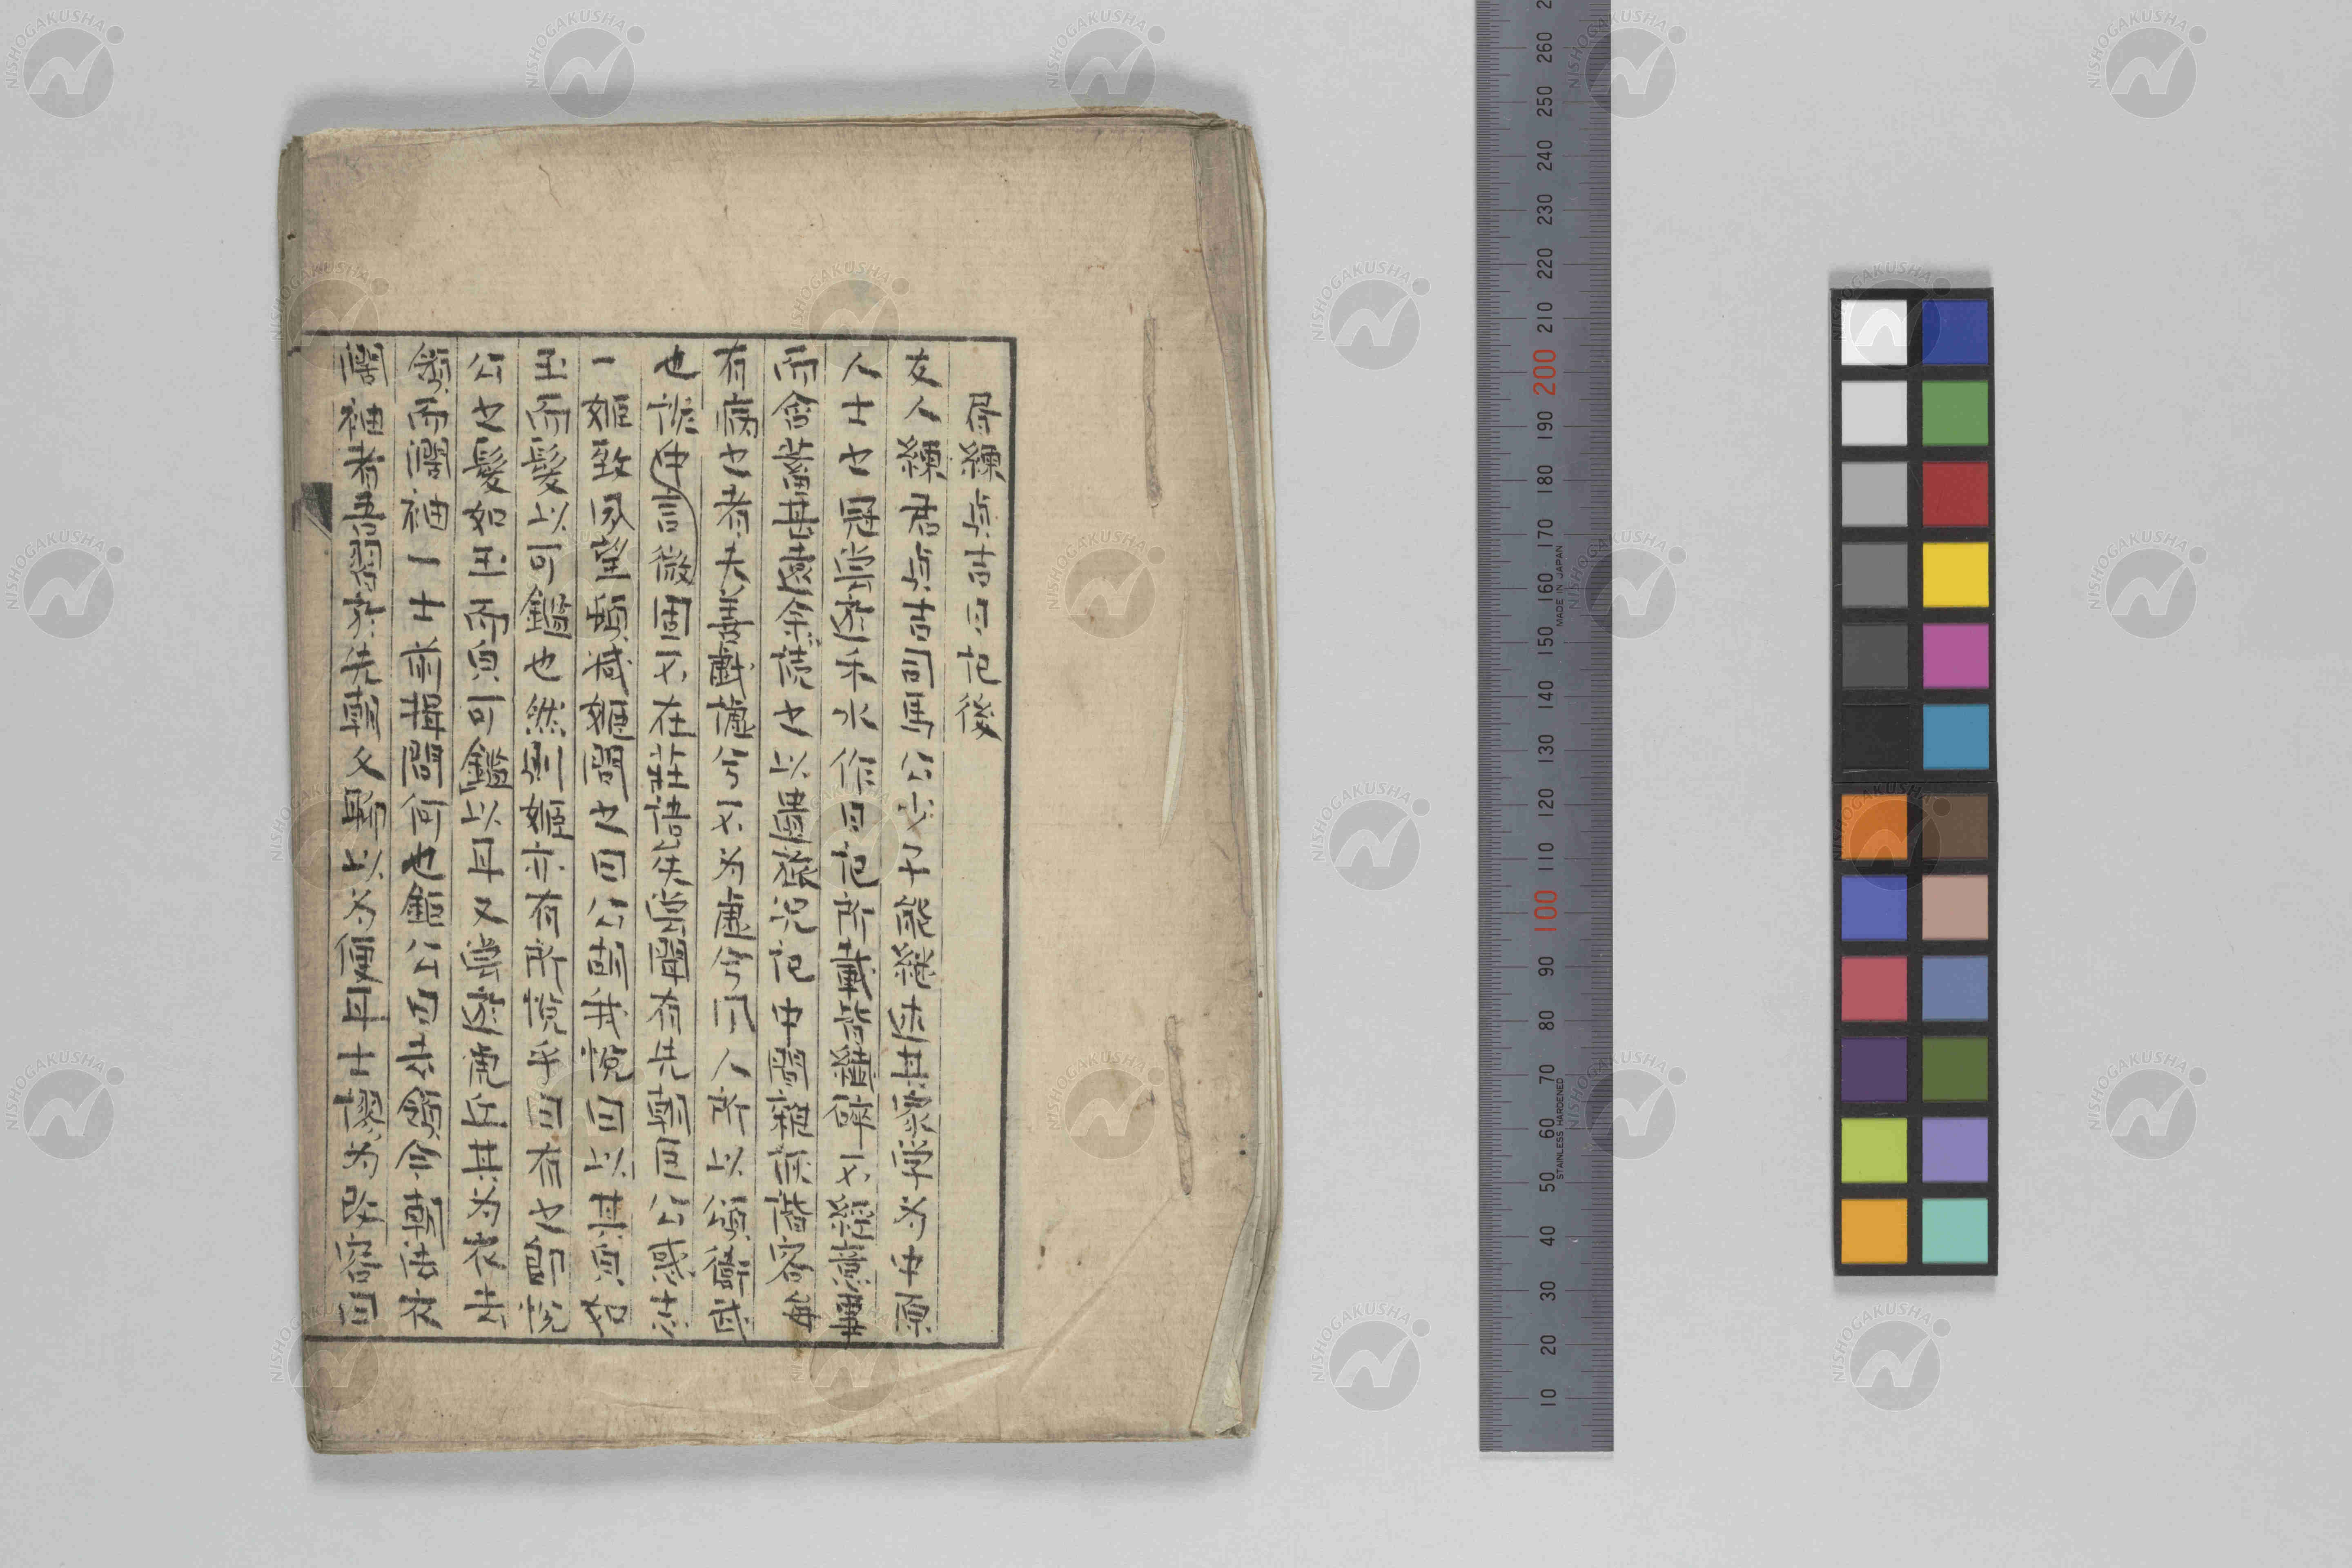 尋練貞吉日記後
友人練君貞吉司馬公少子能継述其家学為中原
人士之冠嘗遊禾水作日記所載皆細碎不経意事
而含蓄甚遠余読之以畳旅況記中間親族諧容毎
有病之者夫善戯謔兮不為虐兮風人所以頌衛武
也詼仲言微固不在荘語矣嘗聞有先朝臣公惑志
一姫致夙望頓減姫間之曰公胡我悦曰以其貌如
玉而髪以可鑑也然則姫亦有所悦乎曰有之即悦
公之髪如玉而貌可鑑以耳又嘗遊虎丘其為衣去
領而闊袖一士前揖問何也鉅公曰去領今朝法衣
闊袖者吾習於先朝又聊以為便耳士謬為改容曰
NISHOGAKUSHA
260
250
240
230
220
210
200
190
180
170
160
150
140
130
120
110
100
90
80
70
60
50
40
30
20
10
MADE IN JAPAN
STAINLESS HARDENED